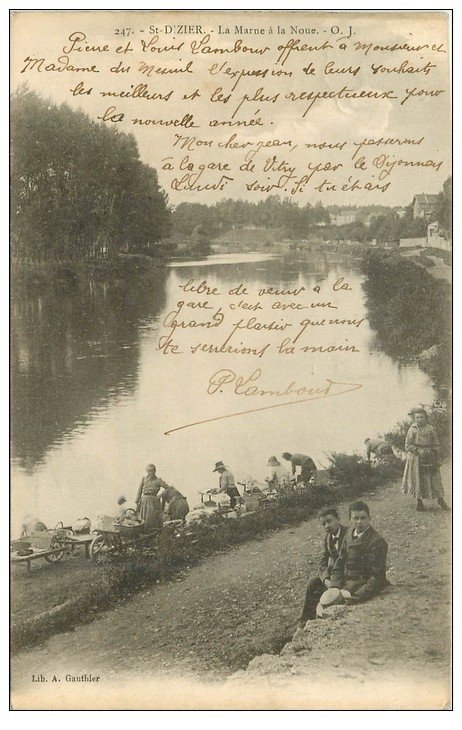 247. - St-DIZIER. - La Marne à la Noue. - O. J.
Pierre et Louis Lambour offrent à Monsieur et
Madame du Mesnil l'expression de leurs souhaits
les meilleurs et les plus respectueux pour
la nouvelle année.
Mon cher Jean, nous passerons
à la gare de Vitry par le Dijonnais
Lundi soir. Si tu étais
libre de venir à la
gare, c'est avec un
grand plaisir que nous
te serrerions la main
P. Lambour
Lib. A. Gauthier